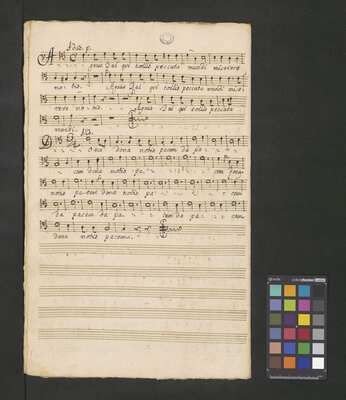 gnus Dei qui tollis peccata mundi miserere
no - bis. Agnus Dei qui tollis peccata mundi mise
rere no - bis. Agnus Dei qui tollis peccata
mundi.
Dona dona nobis pacem da pa -
cem dona nobis pa - cem
nobis pacem dona nobis pa - cem
da pacem da pa - cem da pa - cem
dona nobis pacem.